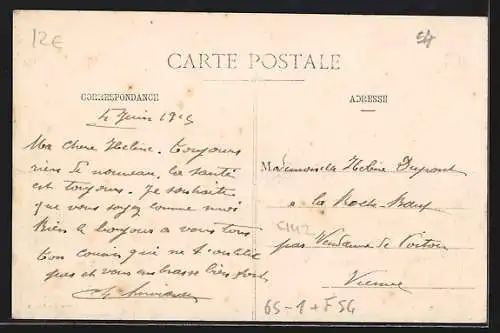 12€
CARTE POSTALE
CORRESPONDANCE
ADRESSE
4 Juin 1915
Ma chere Helène. Toujours
rien de nouveau, la santé
est toujours. Je souhaite
que vous soyez comme moi
Bien le bonjour a vous tous
Ton cousin qui ne t'oublie
pas et vous embrasse bien fort
Mademoiselle Helène Dupont
a la Roche
par Vendeuvre de Poitou
Vienne
65-1+F5G